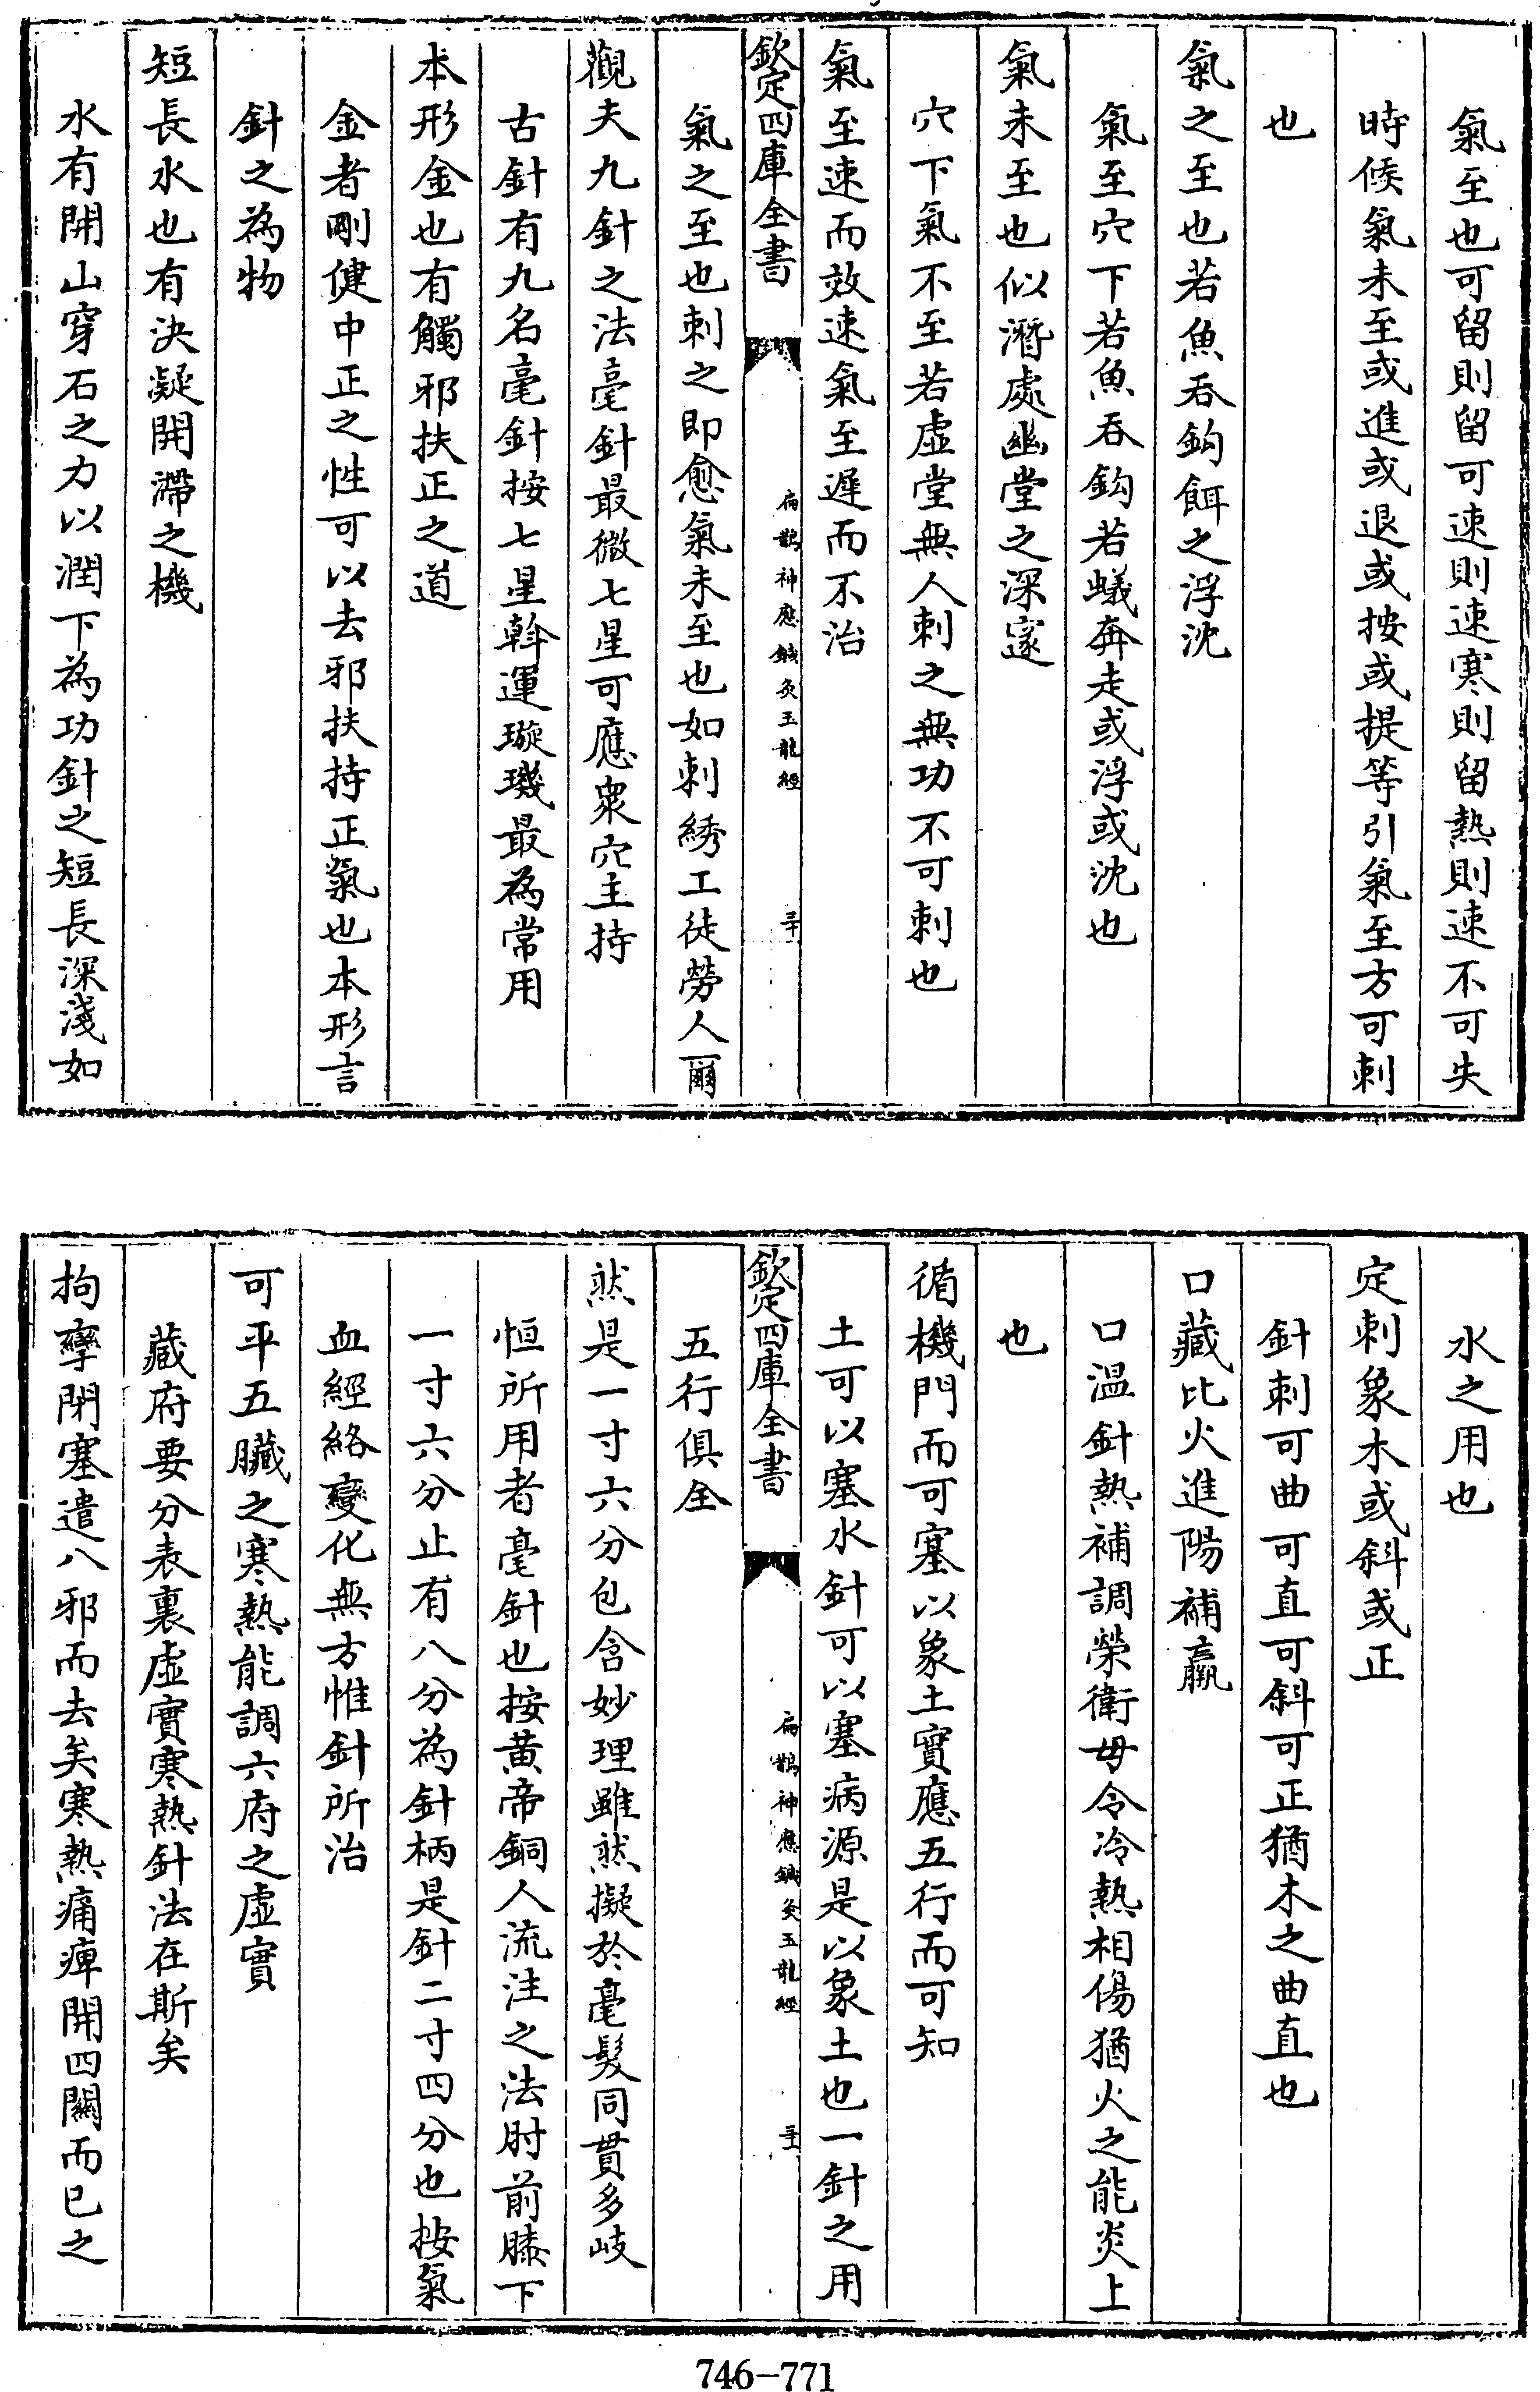 氣至也可留則留可速則速寒則留熱則速不可失
時候氣未至或進或退或按或提等引氣至方可刺
也
氣之至也若魚吞鈎餌之浮沈
氣至穴下若魚吞鈎若蟻奔走或浮或沈也
氣未至也似潛處幽堂之深邃
穴下氣不至若虛堂無人刺之無功不可刺也
氣至速而效速氣至遲而不治
欽定四庫全書
扁鵲神應鍼灸玉龍經
三十
氣之至也刺之即愈氣未至也如刺綉工徒勞人爾
觀夫九針之法毫針最微七星可應衆穴主持
古針有九名毫針按七星斡運璇璣最為常用
本形金也有觸邪扶正之道
金者剛健中正之性可以去邪扶持正氣也本形言
針之為物
短長水也有決凝開滯之機
水有開山穿石之力以潤下為功針之短長深淺如
水之用也
定刺象木或斜或正
針刺可曲可直可斜可正猶木之曲直也
口藏比火進陽補羸
口溫針熱補調榮衛毋令冷熱相傷猶火之能炎上
也
循機門而可塞以象土實應五行而可知
土可以塞水針可以塞病源是以象土也一針之用
欽定四庫全書
扁鵲神應鍼灸玉龍經
三十一
五行俱全
然是一寸六分包含妙理雖然擬於毫髮同貫多岐
恒所用者毫針也按黄帝銅人流注之法肘前膝下
一寸六分止有八分為針柄是針二寸四分也按氣
血經絡變化無方惟針所治
可平五臟之寒熱能調六府之虛實
藏府要分表裏虛實寒熱針法在斯矣
拘攣閉塞遣八邪而去矣寒熱痛痺開四關而已之
746-771